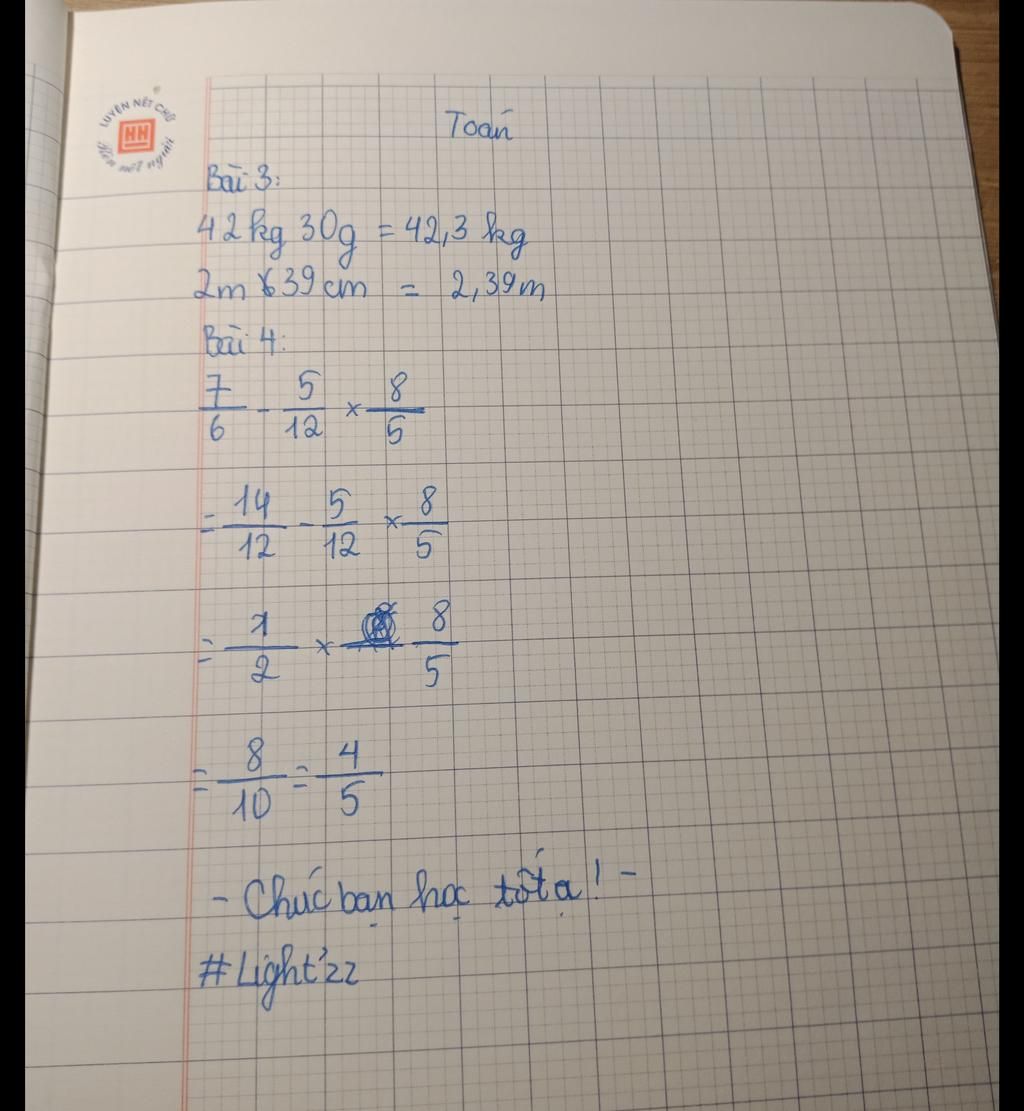 LUYỆN NÉT CHỮ
HH
Rèn nết người
Toán
Bài 3:
42kg 30g = 42,3 kg
2m 39 cm = 2,39m
Bài 4:
7/6 - 5/12 × 8/5
= 14/12 - 5/12 × 8/5
= 1/2 × 8/5
= 8/10 = 4/5
- Chúc bạn học tốt ạ! -
#Light'zz